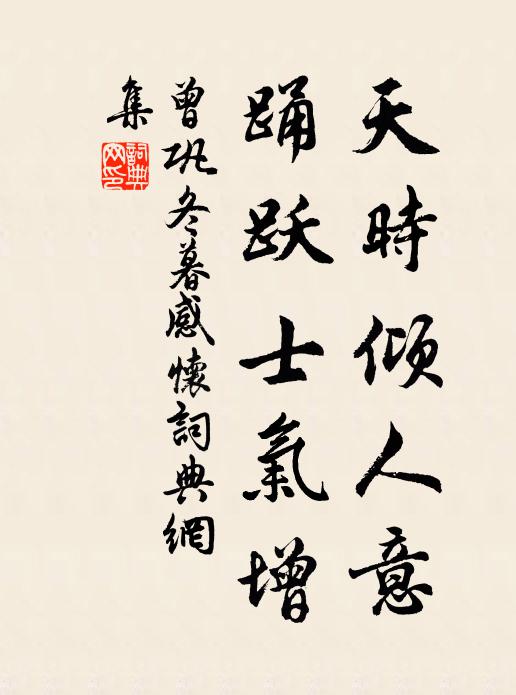 天時傾人意
踊跃士氣增
曾巩冬暮感懷詞典網
集
詞典
网印